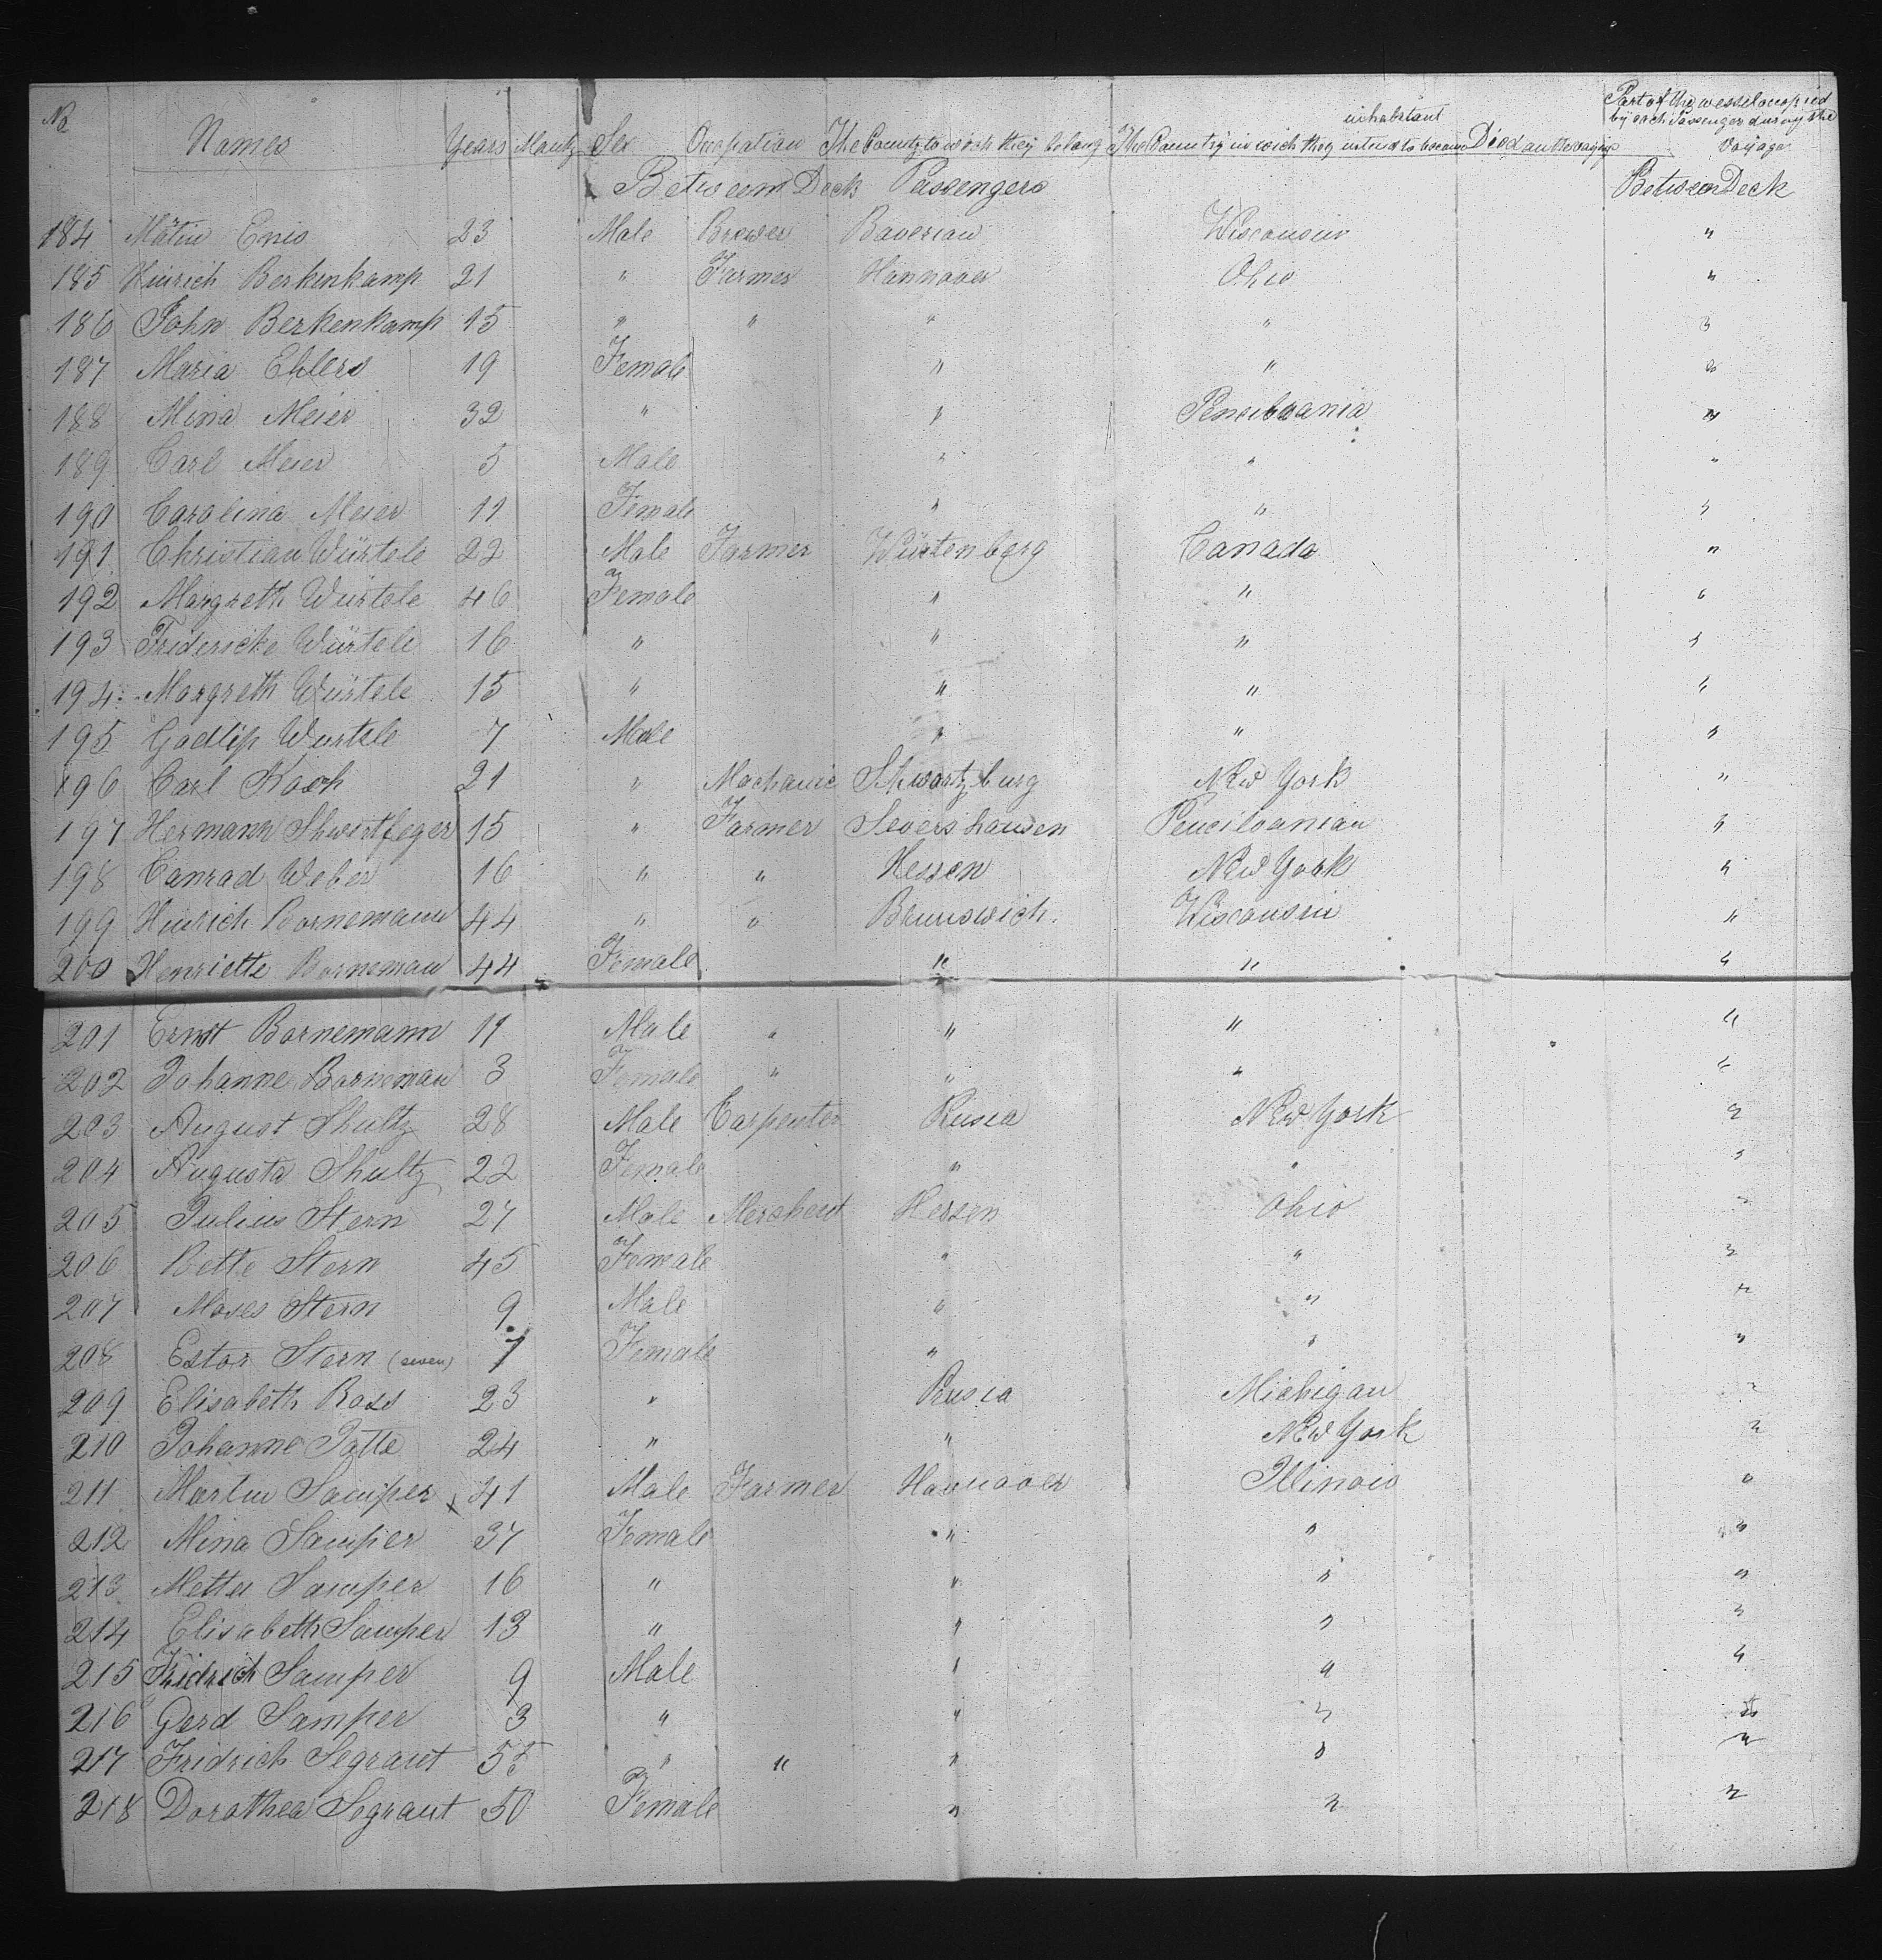 No Names Years Montz Sex Ocupation The Countz to wich they belong The Country in wich they intend to become inhabstant Died on the vayage Part of the wessel ocupied by each Passenger during the Voijage
Betweem Deck Passengers Between Deck
184 Mätin Enis 23 Male Brewer Baverian Wisconsin "
185 Hinrich Berkenkamp 21 " Farmer Hannover Ohio "
186 John Berkenkamp 15 " " " " "
187 Maria Ehlers 19 Female " " "
188 Mina Meier 32 " " Pencilvania "
189 Carl Meier 5 Male " " "
190 Carolina Meier 11 Female " " "
191 Christian Würtele 22 Male Farmer Würtenberg Canada "
192 Margreth Würtele 46 Female " " "
193 Fridericke Würtele 16 " " " "
194 Margreth Würtele 15 " " " "
195 Godlip Wurtele 7 Male " " "
196 Carl Koch 21 " Machanic Schwartzburg New York "
197 Hermann Shwertfeger 15 " Farmer Severshausen Pencilvanian "
198 Conrad Weber 16 " " Hessen New York "
199 Hinrich Bornemann 44 " " Brunswich. Wisconsin "
200 Henriette Borneman 44 Female " " "
201 Ernst Bornemann 11 Male " " " "
202 Johanne Borneman 3 Female " " " "
203 August Shultz 28 Male Carpenter Prusia New York "
204 Augusta Shultz 22 Female " " "
205 Julius Stern 27 Male Merchent Hessen Ohio "
206 Bette Stern 45 Female " " "
207 Moses Stern 9 Male " " "
208 Ester Stern (seven) 7 Female " " "
209 Elisabeth Ross 23 " Prusia Michigan "
210 Johanne Jatte 24 " " New York "
211 Martin Samper x 41 Male Farmer Hannover Illinois "
212 Mina Samper 37 Female " " "
213 Metta Samper 16 " " " "
214 Elisabeth Samper 13 " " " "
215 Fridrich Samper 9 Male " " "
216 Gerd Samper 3 " " " "
217 Fridrich Segraut 55 " " " " "
218 Dorothea Segraut 50 Female " " "